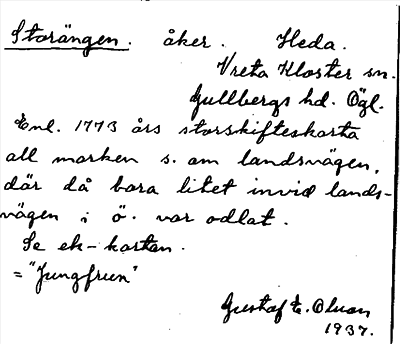 Storängen. åker. Heda.
Vreta Kloster sn.
Gullbergs hd. Ögl.
Enl. 1773 års storskifteskarta
all marken s. om landsvägen,
där då bara litet invid lands-
vägen i ö. var odlat.
Se ek-kartan.
= "Jungfrun"
Gustaf E. Olson
1937.